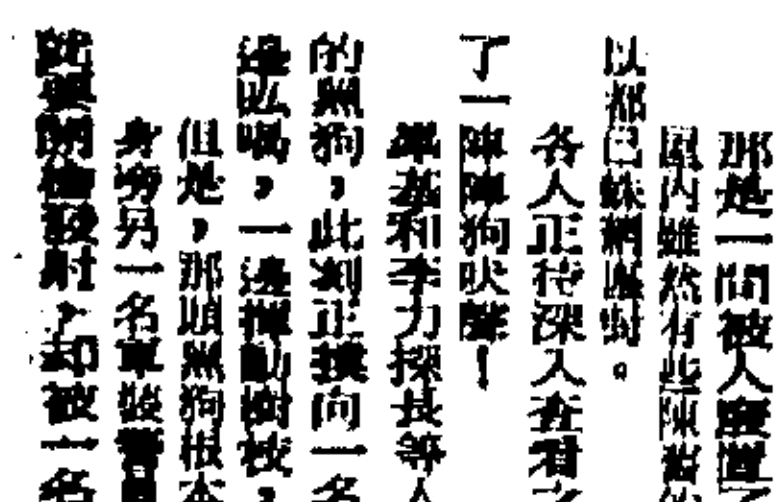 那是一間被人廢置了
屋內雖然有些陳舊
以都已蛛網塵封。
各人正待深入查看之
了一陣陣狗吠聲！
基和李力探長等人
的黑狗，此刻正撲向一名
邊吆喝，一邊揮動樹枝，
但是，那頭黑狗根本
身旁另一名軍裝警員
就要開槍發射，却被一名